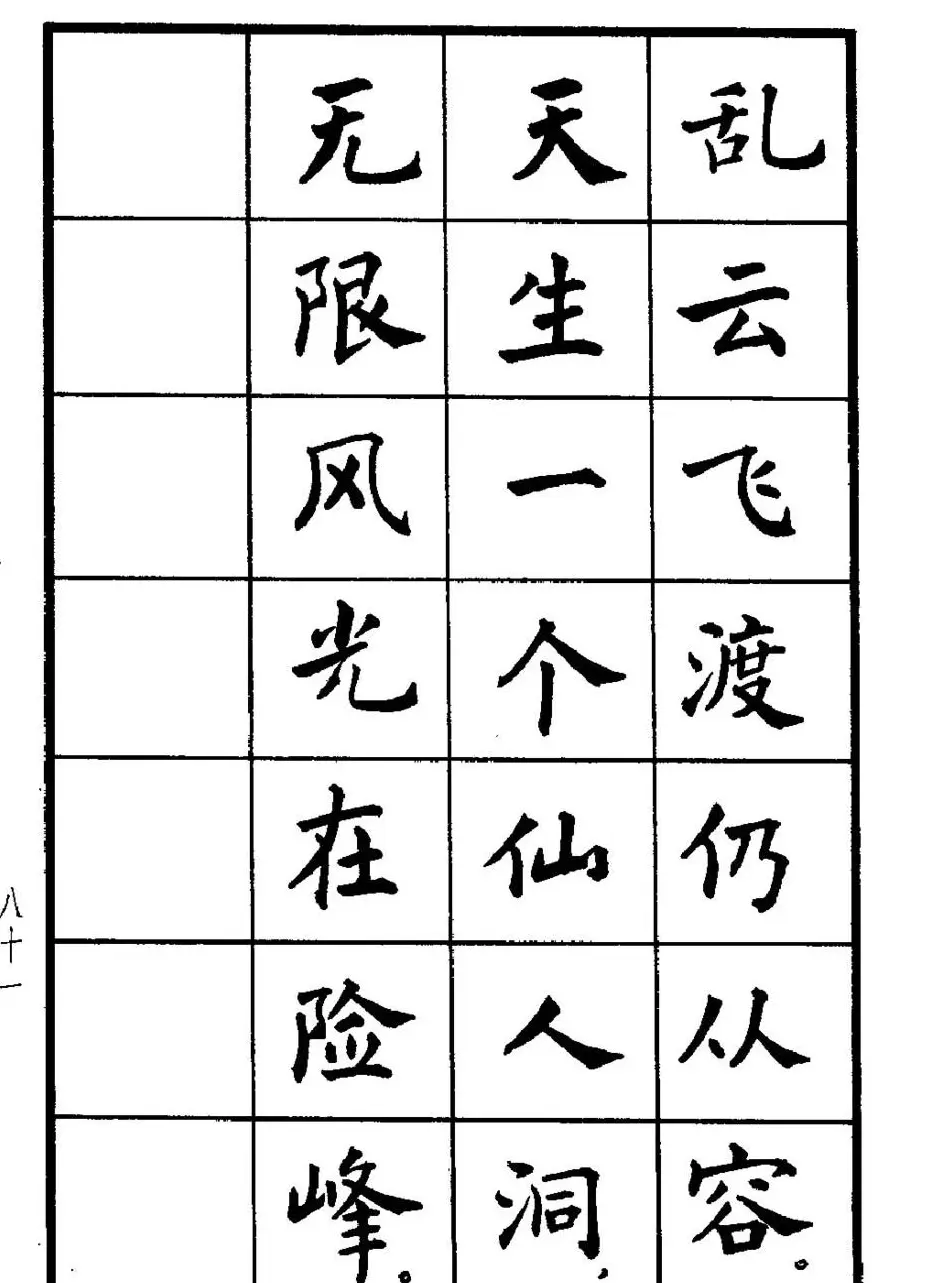 乱云飞渡仍从容。
天生一个仙人洞，
无限风光在险峰。
八十一